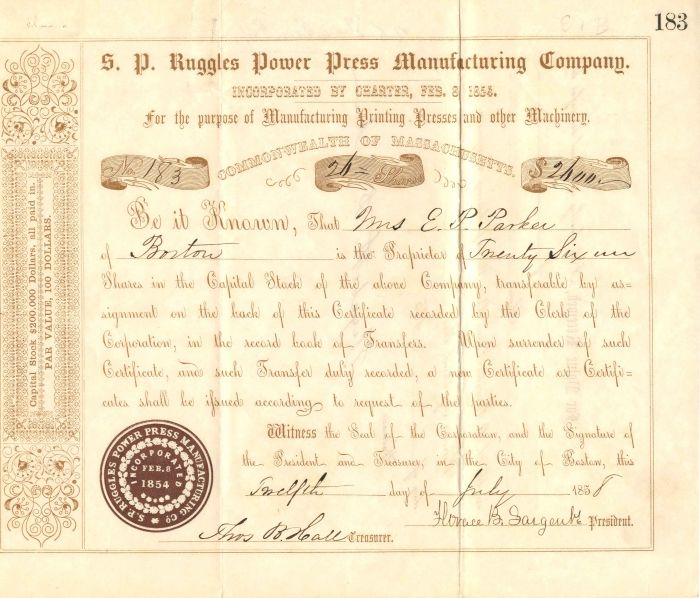 183
S. P. Ruggles Power Press Manufacturing Company.
INCORPORATED BY CHARTER, FEB. 8, 1854.
For the purpose of Manufacturing Printing Presses and other Machinery.
COMMONWEALTH OF MASSACHUSETTS.
No. 183
26 Shares
$ 2600.
Be it Known, That Mrs E. P. Parker
of Boston is the Proprietor of Twenty Six
Shares in the Capital Stock of the above Company, transferable by as-
signment on the back of this Certificate recorded by the Clerk of the
Corporation, in the record book of Transfers. Upon surrender of such
Certificate, and such Transfer duly recorded, a new Certificate or Certifi-
cates shall be issued according to request of the parties.
Witness the Seal of the Corporation, and the Signature of
the President and Treasurer, in the City of Boston, this
Twelfth day of July 1858
Horace B. Sargent President.
Thos B. Hall Treasurer.
Capital Stock $200.000 Dollars, all paid in.
PAR VALUE, 100 DOLLARS.
S. P. RUGGLES POWER PRESS MANUFACTURING CO.
INCORPORATED
FEB. 8
1854